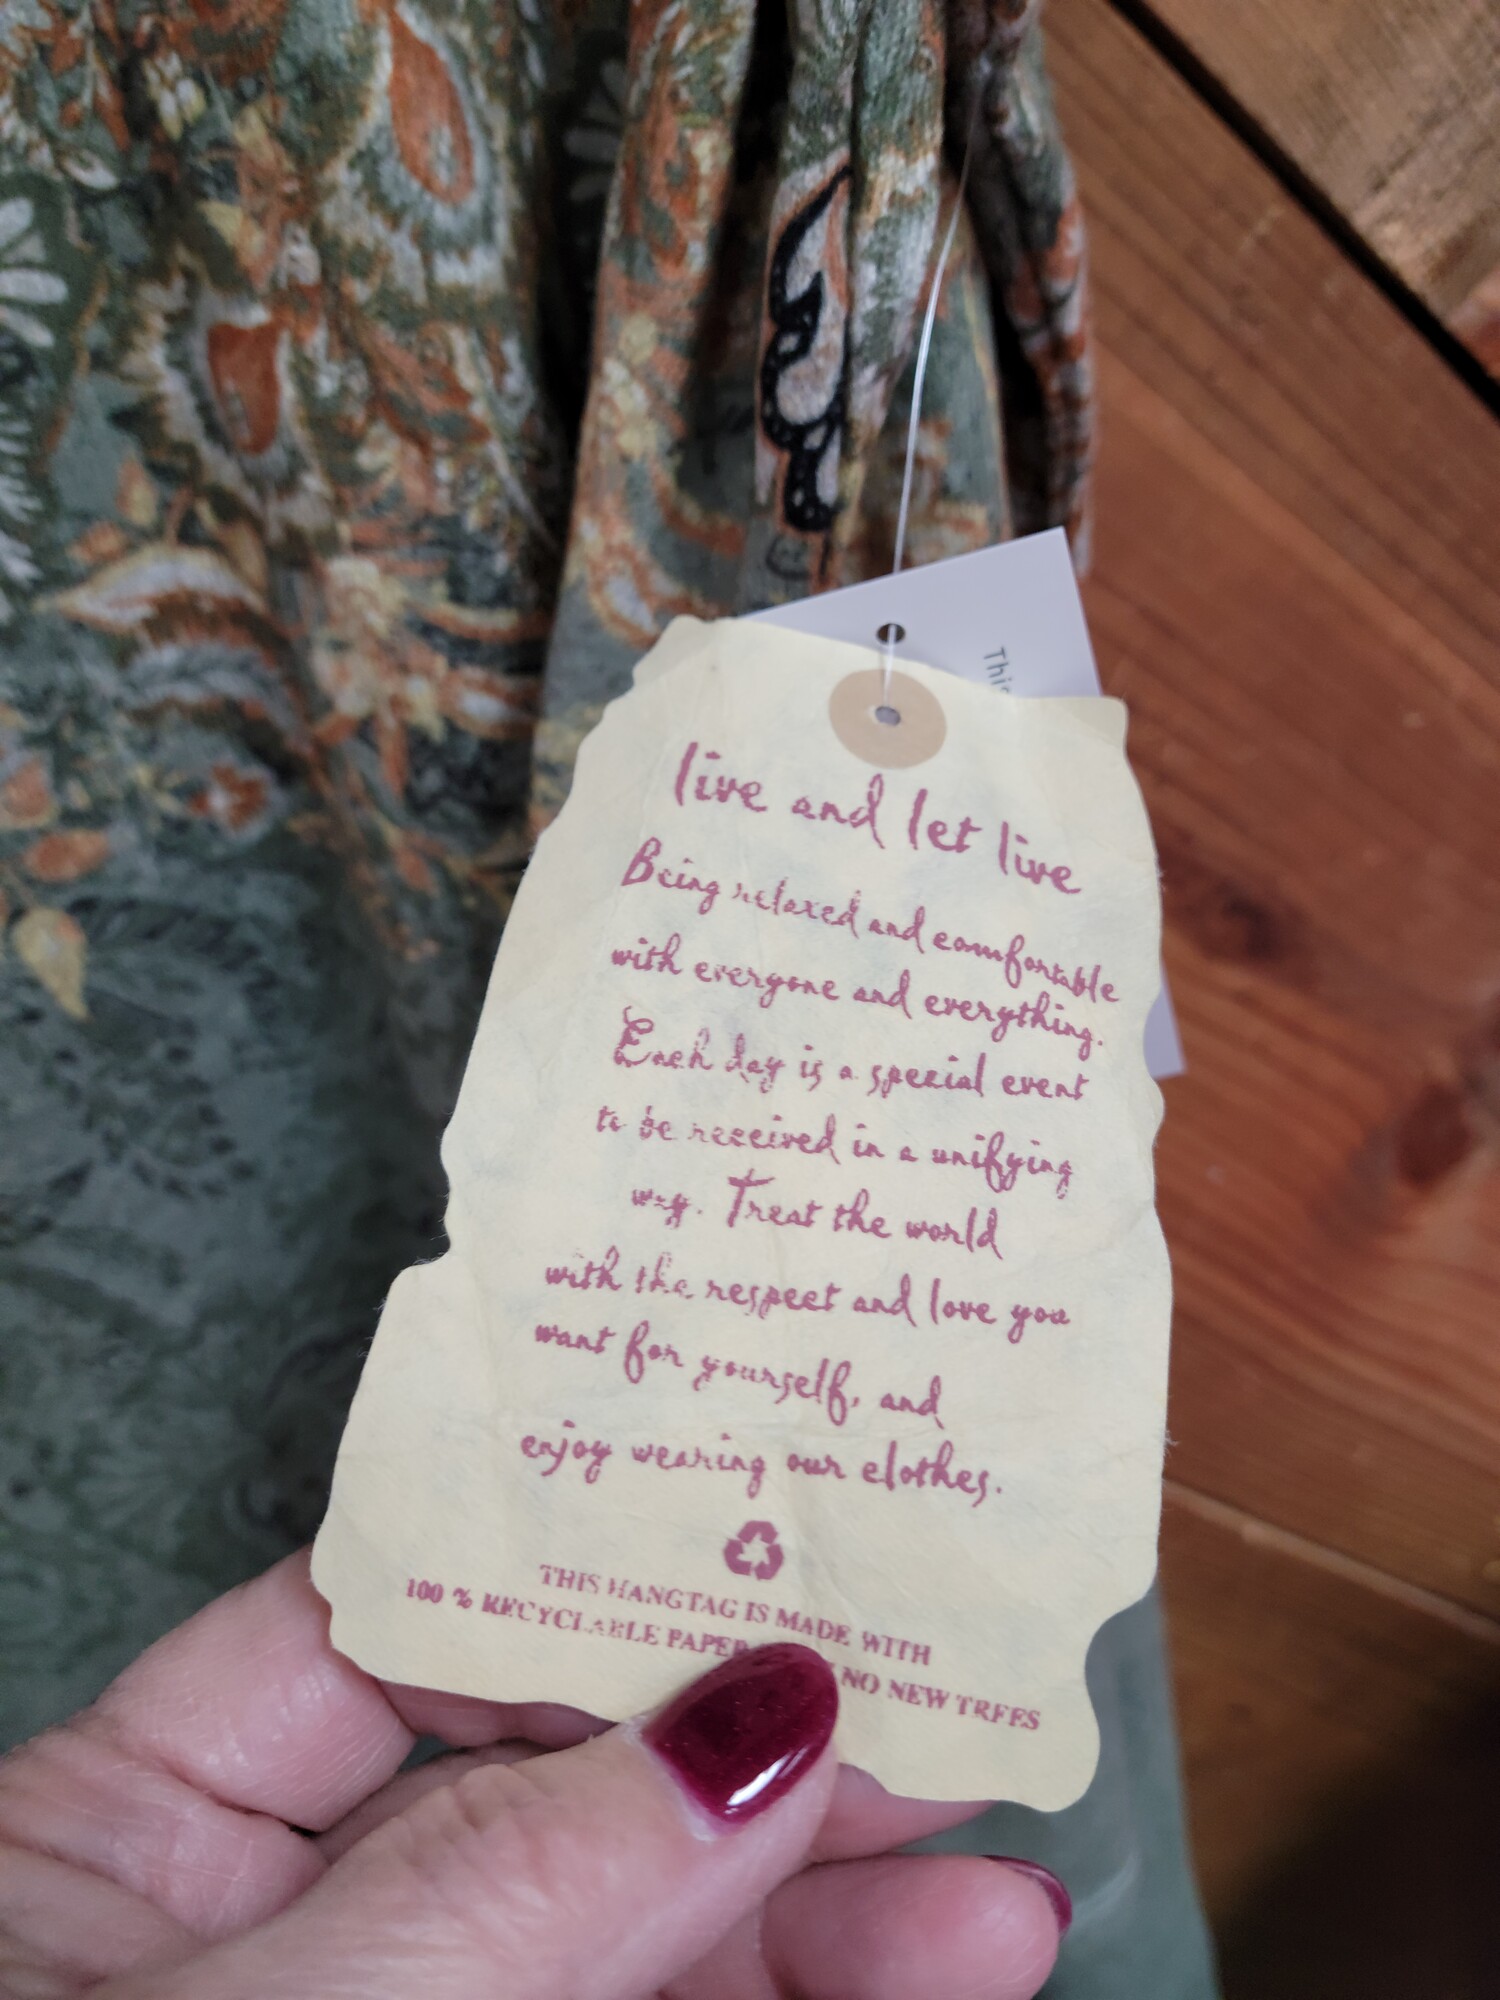 This
live and let live
Being relaxed and comfortable
with everyone and everything.
Each day is a special event
to be received in a unifying
way. Treat the world
with the respect and love you
want for yourself, and
enjoy wearing our clothes.
THIS HANGTAG IS MADE WITH
100 % RECYCLABLE PAPER NO NEW TREES